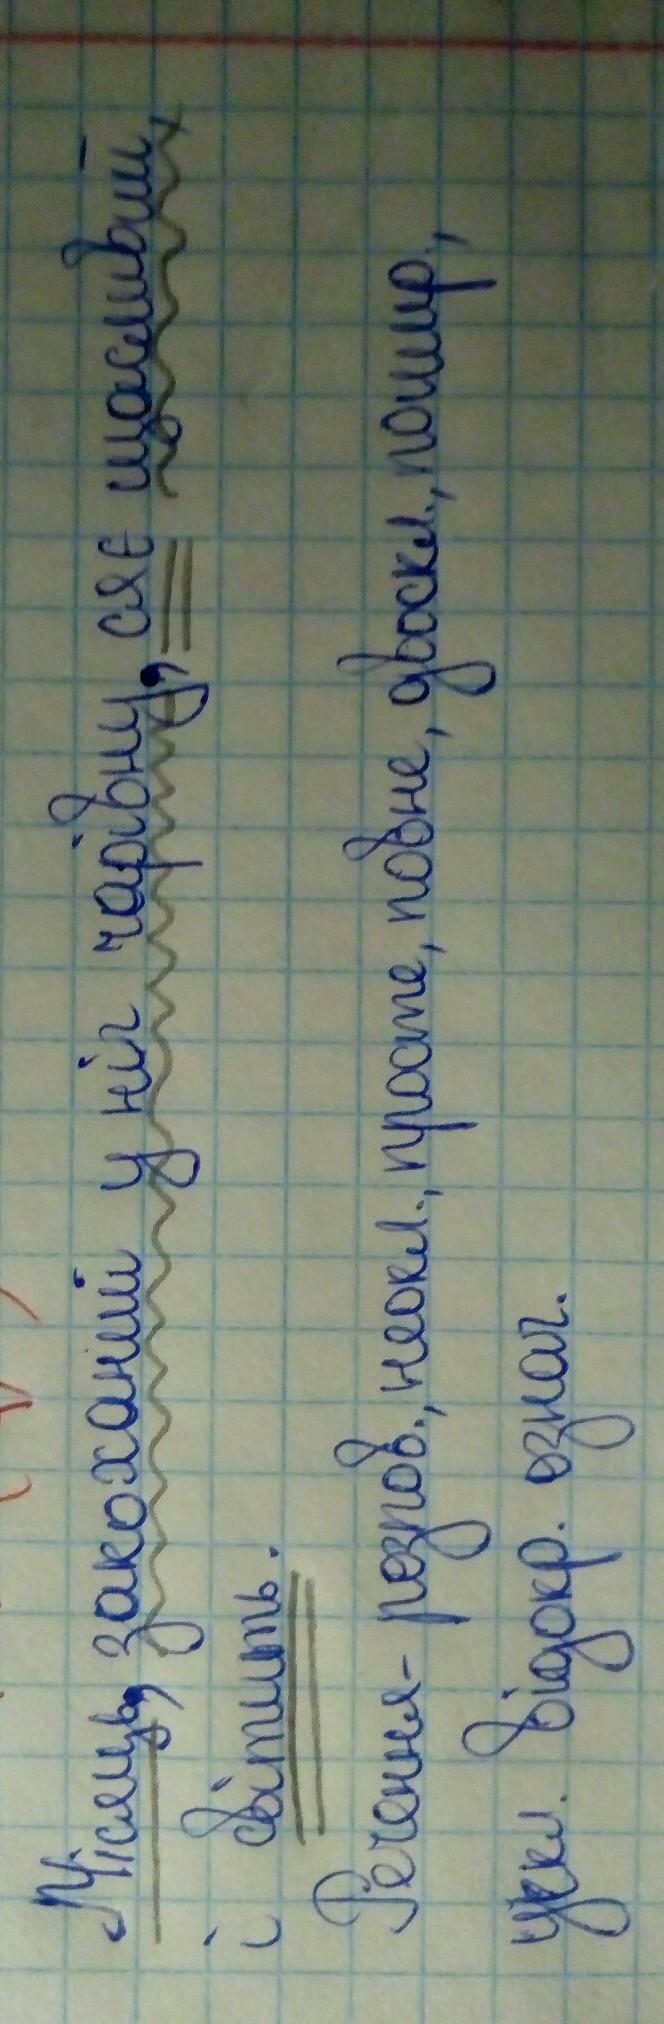 Місяць, закоханий у ніч чарівну, сяє щасливий
і світить.
Речення- розпов., неокл., просте, повне, двоскл., пошир.,
ускл. відокр. означ.